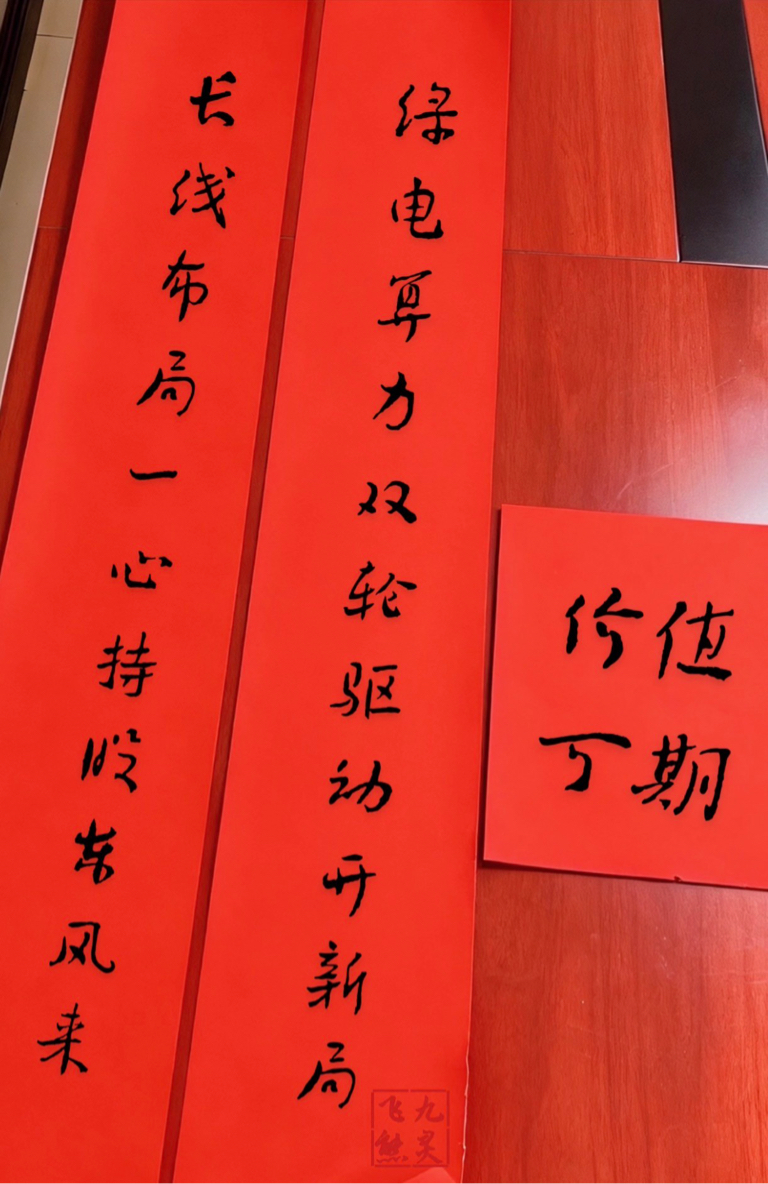 绿电算力双轮驱动开新局
长线布局一心持股东风来
价值
可期
九灵
飞熊